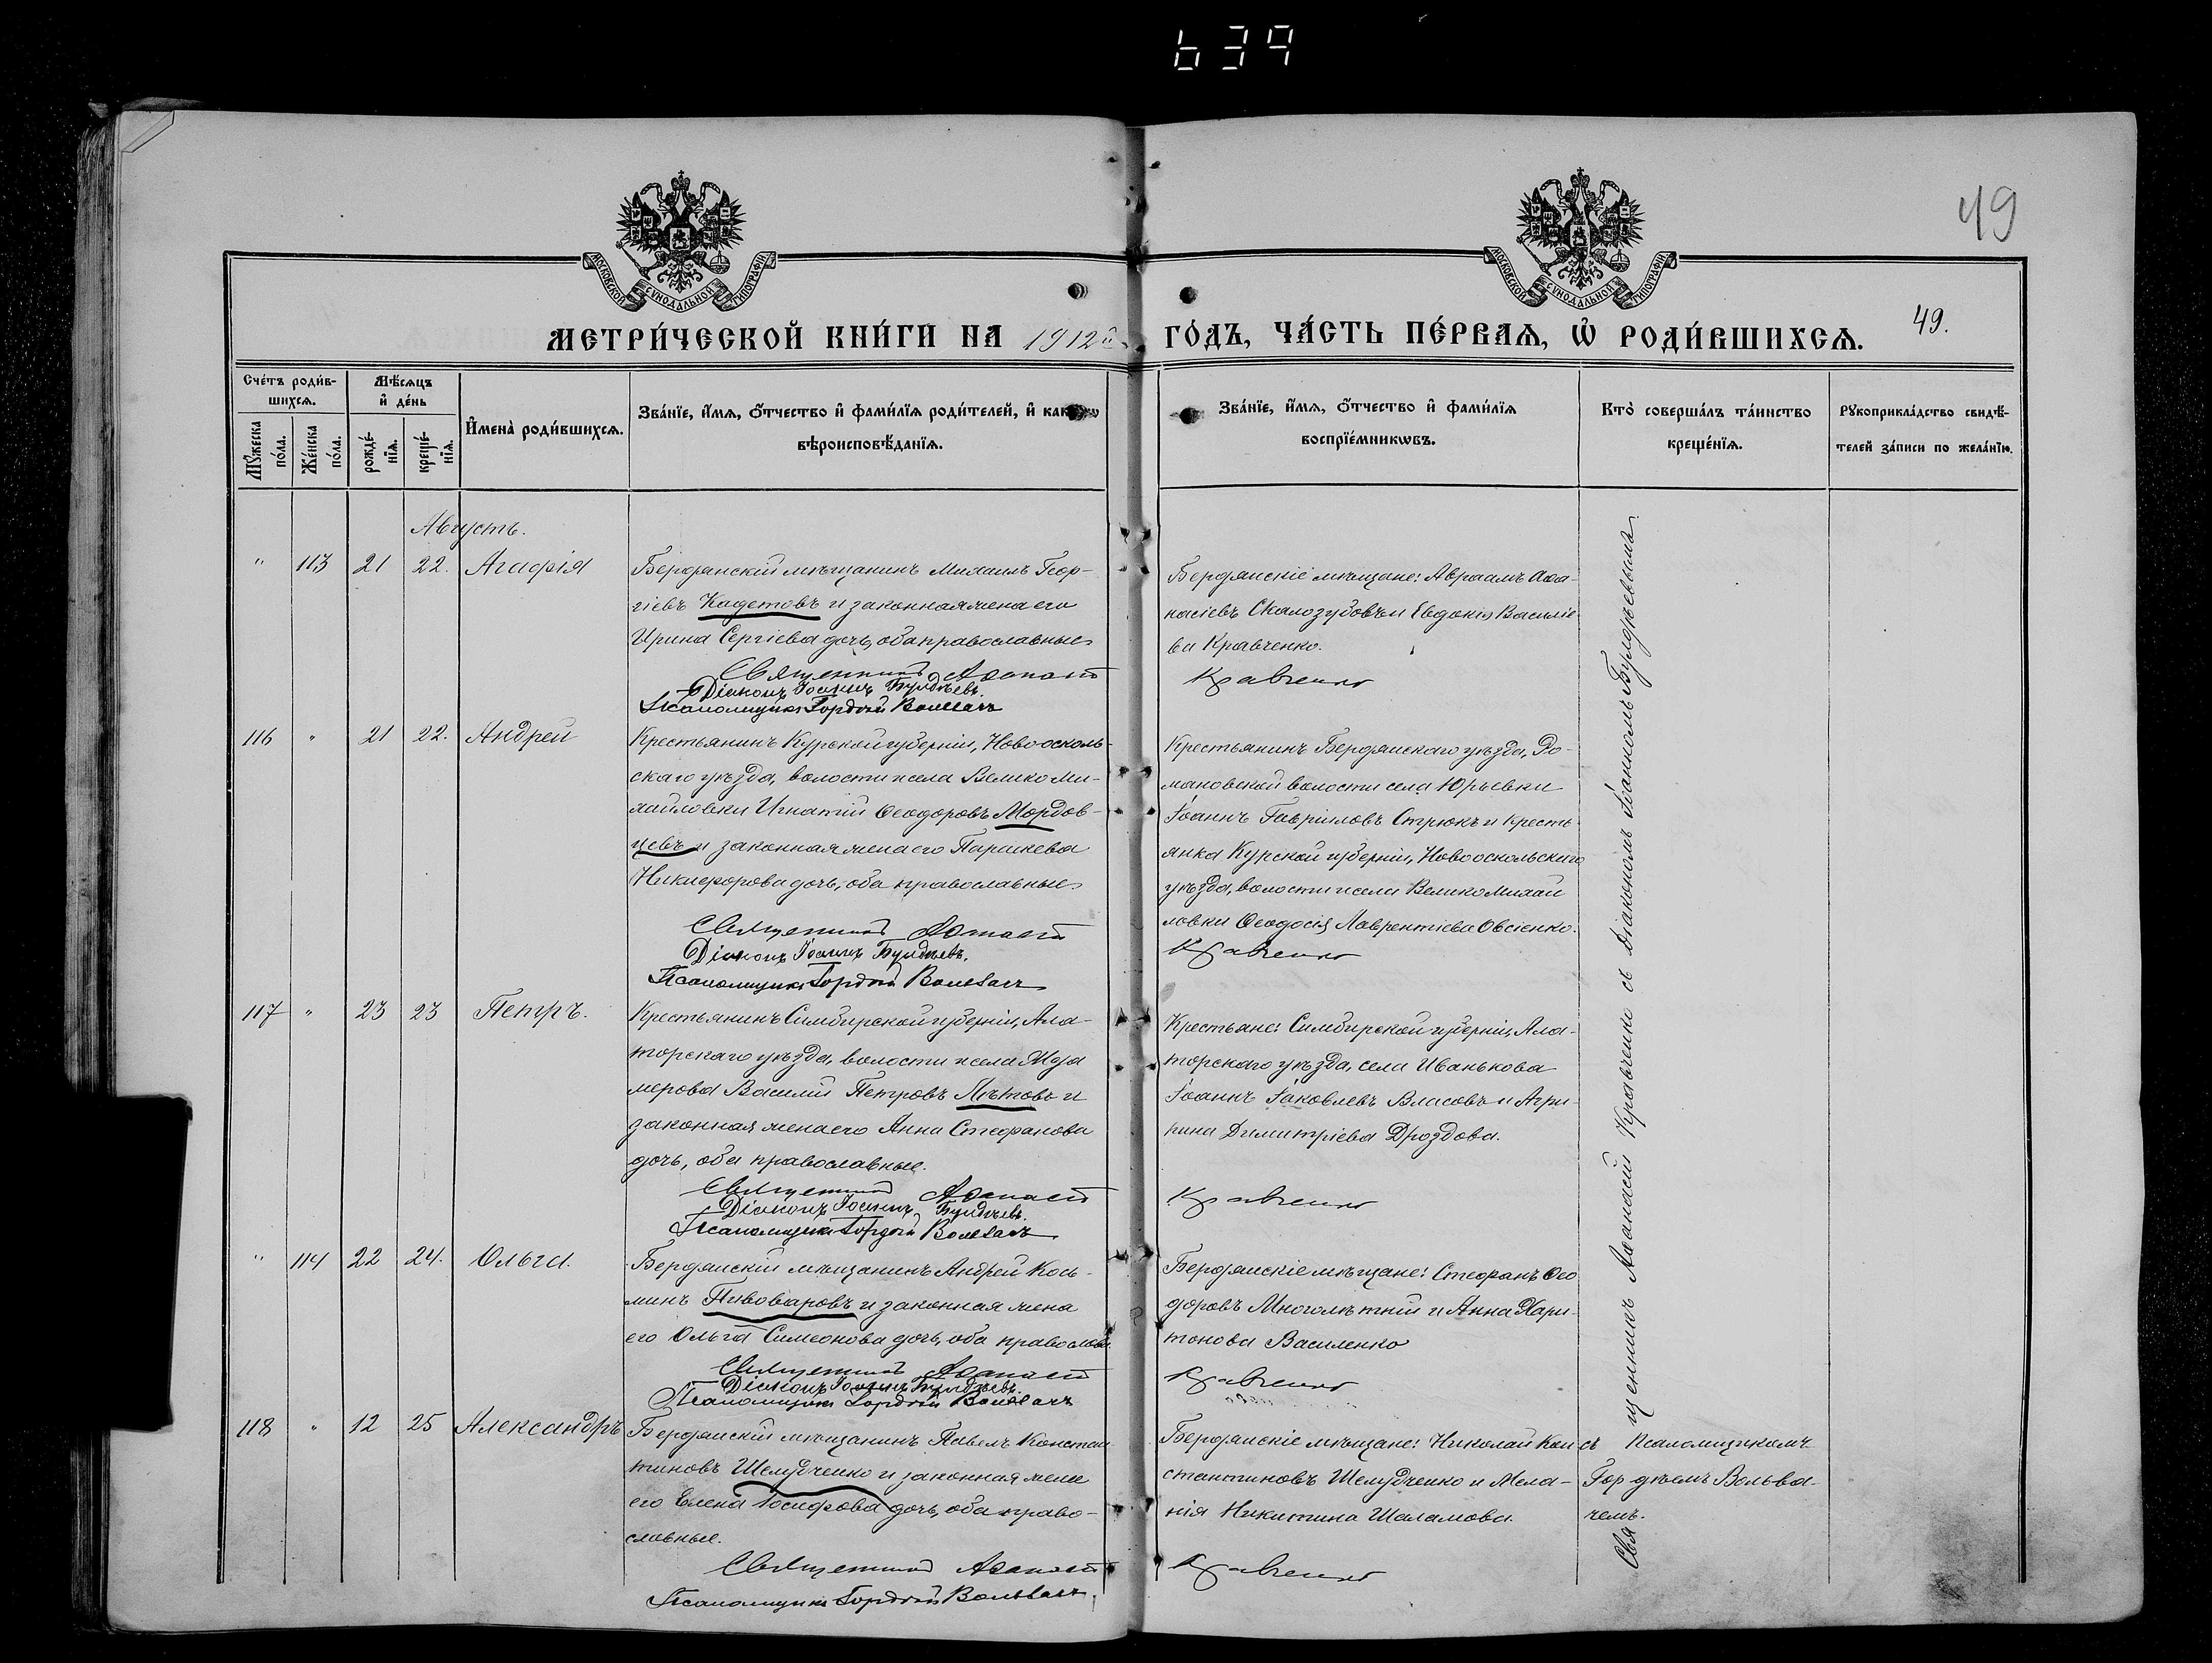 639
49
МОСКОВСКОЙ СѴНОДАЛЬНОЙ ТИПОГРАФІИ
МОСКОВСКОЙ СѴНОДАЛЬНОЙ ТИПОГРАФІИ
МЕТРИ́ЧЕСКОЙ КНИ́ГИ НА 1912й ГО́ДЪ, ЧА́СТЬ ПЕ́РВАѦ, Ѽ РОДИ́ВШИХСѦ. 49.
Сче́тъ роди́в-
шихсѧ.
Мꙋ́жеска по́ла.
Же́нска по́ла.
Мѣ́сѧцъ
и҆ де́нь
рожде́-
нїѧ.
креще́-
нїѧ.
И҆мена̀ роди́вшихсѧ.
Зва́нїе, и҆́мѧ, ѻ҆́тчество и҆ фами́лїѧ роди́телей, и҆
вѣроисповѣ́данїѧ.
Зва́нїе, и҆́мѧ, ѻ҆́тчество и҆ фами́лїѧ
воспрїе́мникѡвъ.
Кто̀ соверша́лъ та́инство
креще́нїѧ.
Рꙋкоприкла́дство свидѣ́-
телей за́писи по жела́нїю.
Августъ.
" 113 21 22. Агафія
Бердянскій мѣщанинъ Михаилъ Геор-
гіевъ Кадетовъ и законная жена его
Ирина Сергіева дочь, оба православные
Священникъ Аѳанасій
Діаконъ Іоаннъ Булдѣевъ.
Псаломщикъ Гордѣй Вольвачъ
Бердянскіе мѣщане: Авраамъ Аѳа-
насіевъ Скалозубовъ и Евдокія Василіе
ва Кравченко.
Кравченко
116 " 21 22. Андрей
Крестьянинъ Курской губерніи, Новоосколь-
скаго уѣзда, волости и села Велико Ми-
хайловки Игнатій Ѳеодоровъ Мордов-
цевъ и законная жена его Параскева
Никифорова дочь, оба православные
Священникъ Аѳанасій
Діаконъ Іоаннъ Булдѣевъ.
Псаломщикъ Гордѣй Вольвачъ
Крестьянинъ Бердянскаго уѣзда, Ро-
мановской волости села Юрьевки
Іоаннъ Гавріиловъ Стрюкъ и кресть
янка Курской губерніи, Новооскольскаго
уѣзда, волости и села Велико Михай
ловки Ѳеодосія Лаврентіева Овсіенко.
Кравченко
117 " 23 23 Петръ.
Крестьянинъ Симбирской губерніи, Ала-
торскаго уѣзда, волости и села
мерова Василій Петровъ Лѣтовъ и
законная жена его Анна Стефанова
дочь, оба православные.
Священникъ Аѳанасій
Діаконъ Іоаннъ Булдѣевъ.
Псаломщикъ Гордѣй Вольвачъ
Крестьяне: Симбирской губерніи, Ала-
торскаго уѣзда, села Иванькова
Іоаннъ Іаковлевъ Власовъ и Агри-
пина Димитріева Дроздова.
Кравченко
" 114 22 24. Ольга.
Бердянскій мѣщанинъ Андрей Кось-
минъ Пивоваровъ и законная жена
его Ольга Симеонова дочь, оба православ.
Священникъ Аѳанасій
Діаконъ Іоаннъ Булдѣевъ.
Псаломщикъ Гордѣй Вольвачъ
Бердянскіе мѣщане: Стефанъ Ѳео
доровъ Многолѣтній и Анна Хари-
тонова Василенко
Кравченко
118 " 12 25 Александръ
Бердянскій мѣщанинъ Павелъ Констан
тиновъ Шелудченко и законная жена
его Елена Іосифова дочь, оба право-
славные.
Священникъ Аѳанасій
Псаломщикъ Гордѣй Вольвачъ.
Бердянскіе мѣщане: Николай Кон
стантиновъ Шелудченко и Мела-
нія Никитина Шаламова.
Кравченко
Священникъ Аѳанасій Кравченко съ діакономъ Іоанномъ Булдѣевымъ
съ псаломщикомъ
Гордѣемъ Вольва-
чемъ.